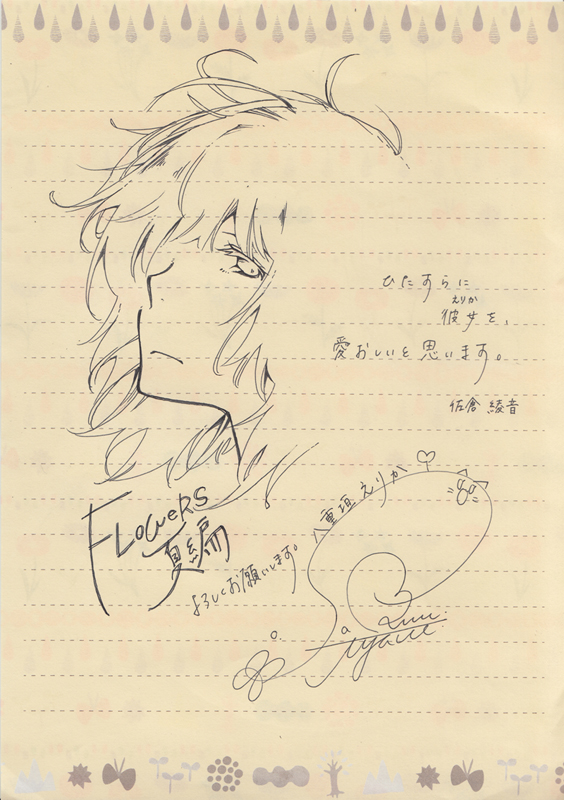 ひたすらに
えりか
彼女を、
愛おしいと思います。
佐倉 綾音
八重垣えりか
FLOWERS
夏編
よろしくお願いします。